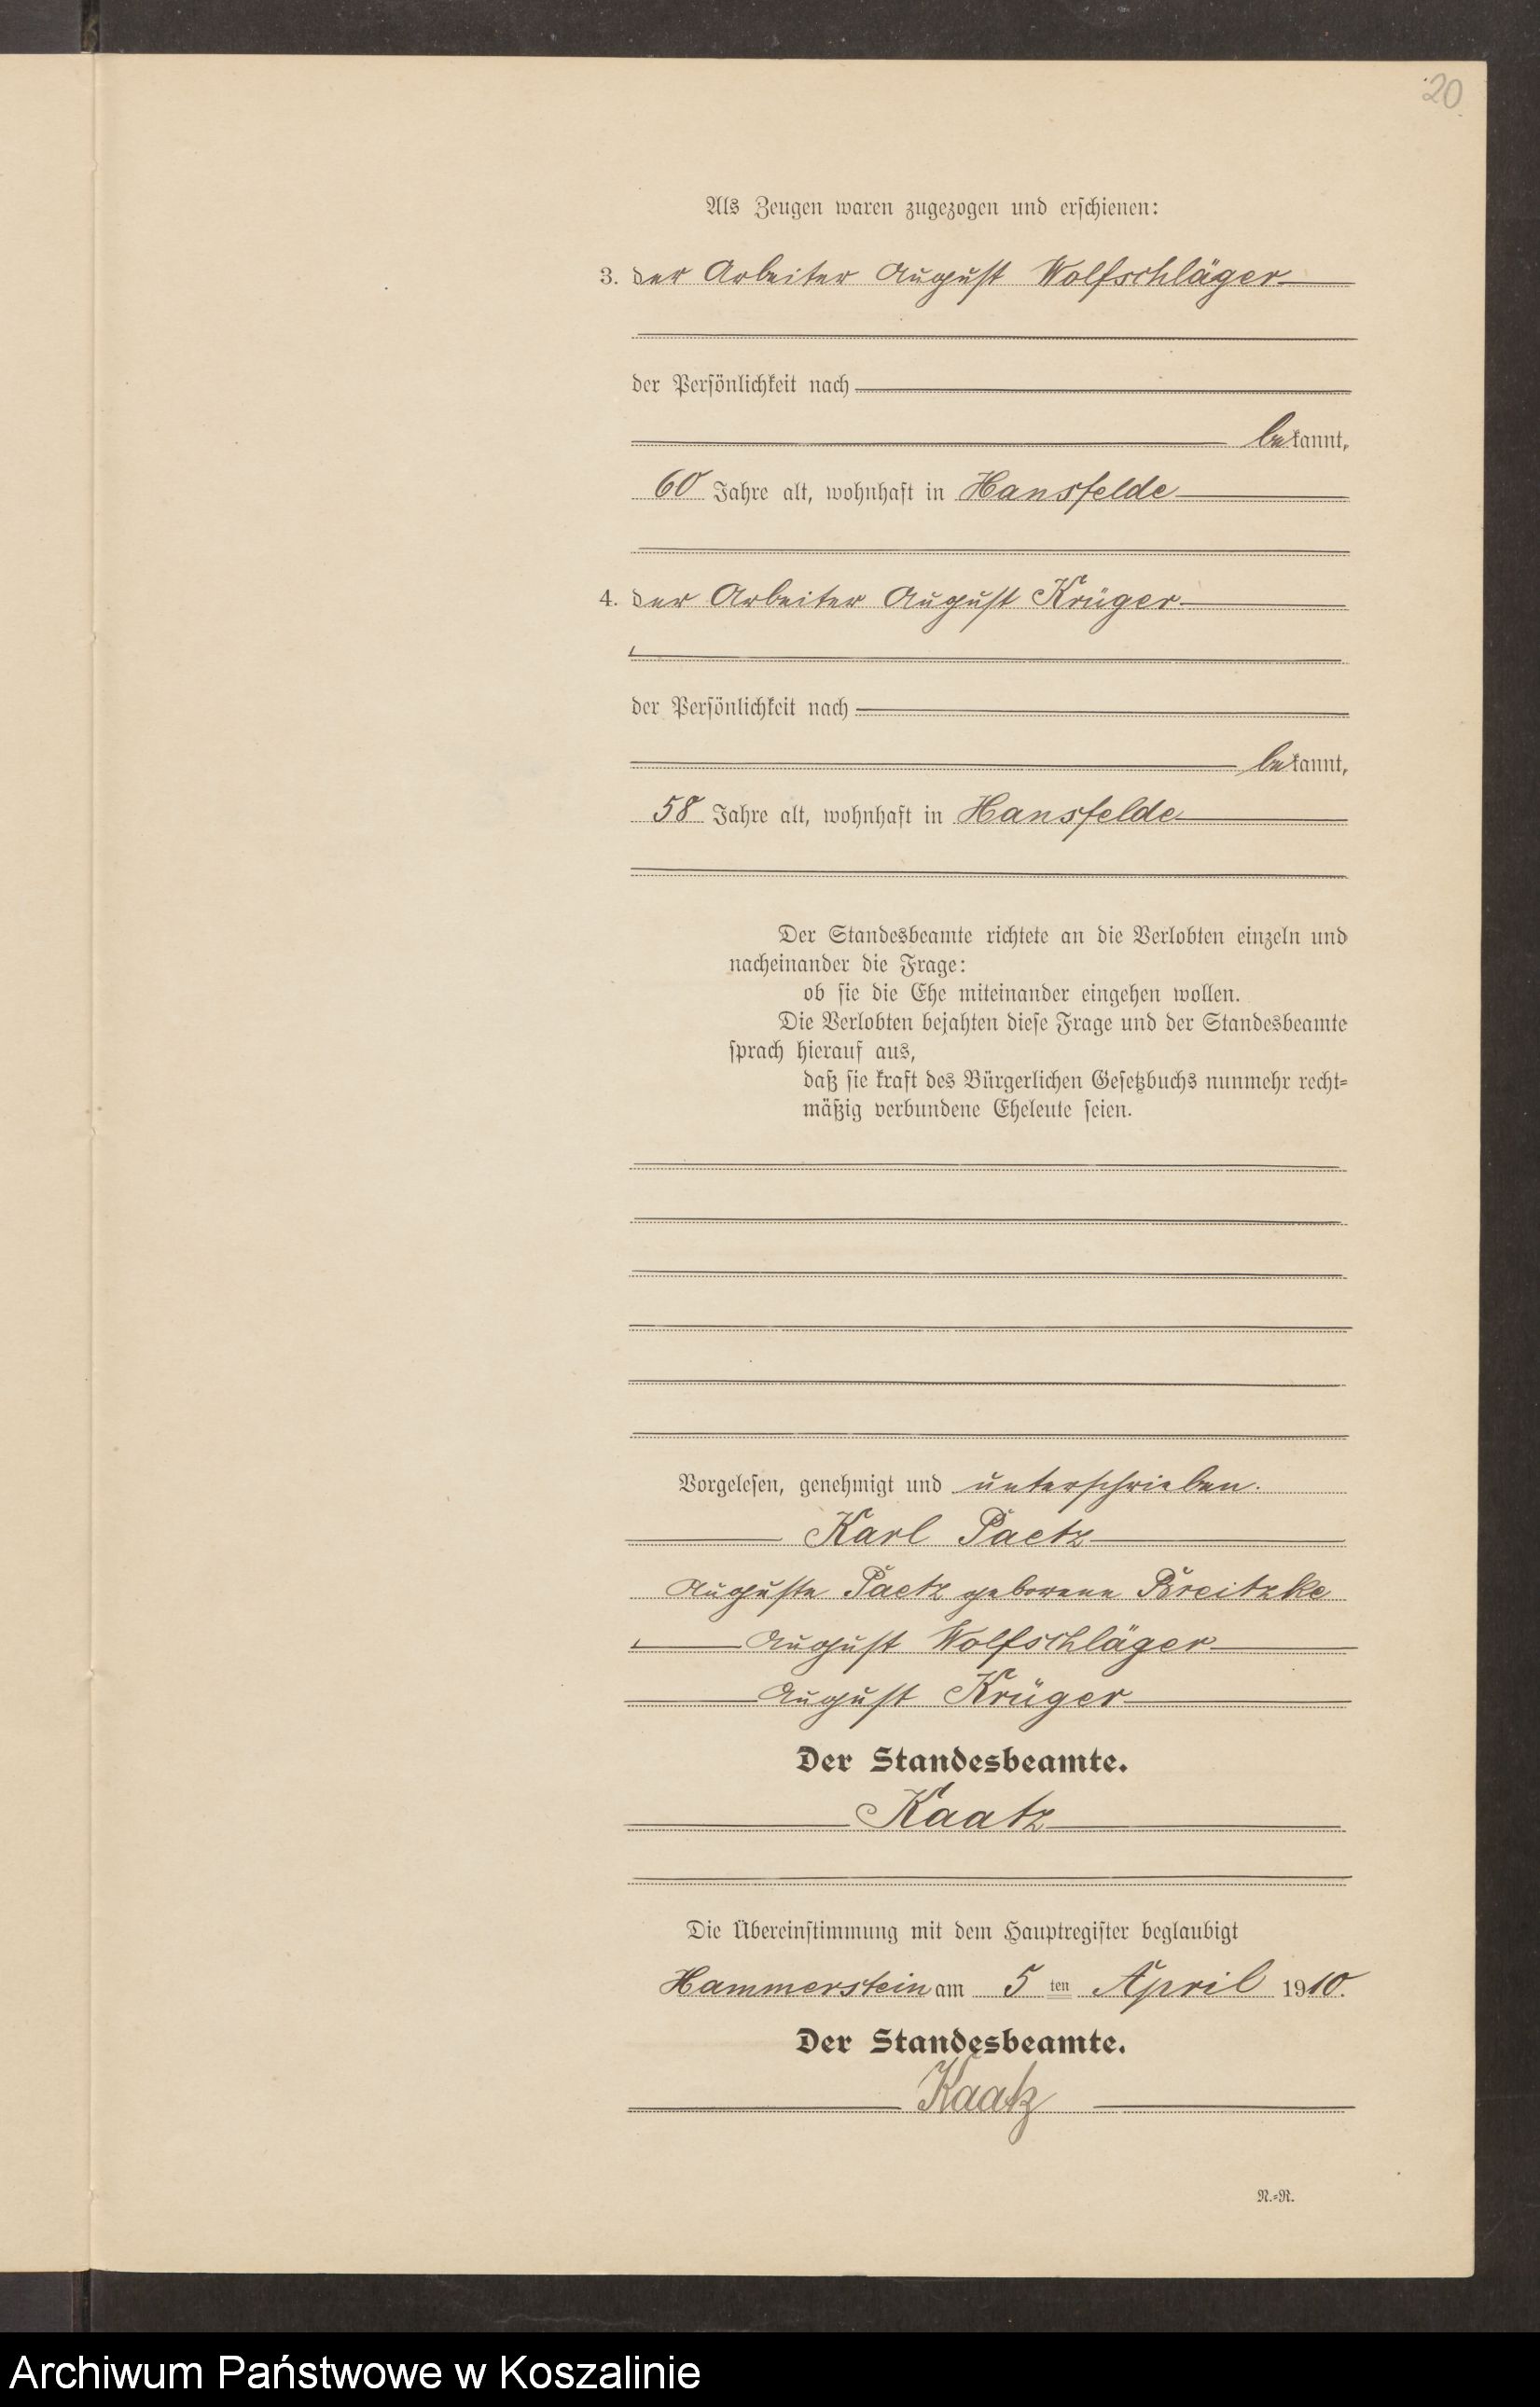 20
Als Zeugen waren zugezogen und erschienen:
3. der Arbeiter August Wolfschläger
der Persönlichkeit nach
bekannt,
60 Jahre alt, wohnhaft in Hansfelde
4. der Arbeiter August Krüger
der Persönlichkeit nach
bekannt,
58 Jahre alt, wohnhaft in Hansfelde
Der Standesbeamte richtete an die Verlobten einzeln und
nacheinander die Frage:
ob sie die Ehe miteinander eingehen wollen.
Die Verlobten bejahten diese Frage und der Standesbeamte
sprach hierauf aus,
daß sie kraft des Bürgerlichen Gesetzbuchs nunmehr recht-
mäßig verbundene Eheleute seien.
Vorgelesen, genehmigt und unterschrieben.
Karl Paetz
Auguste Paetz geborene Breitzke
August Wolfschläger
August Krüger
Der Standesbeamte.
Kaatz
Die Übereinstimmung mit dem Hauptregister beglaubigt
Hammerstein am 5 ten April 1910.
Der Standesbeamte.
Kaatz
N.-R.
Archiwum Państwowe w Koszalinie